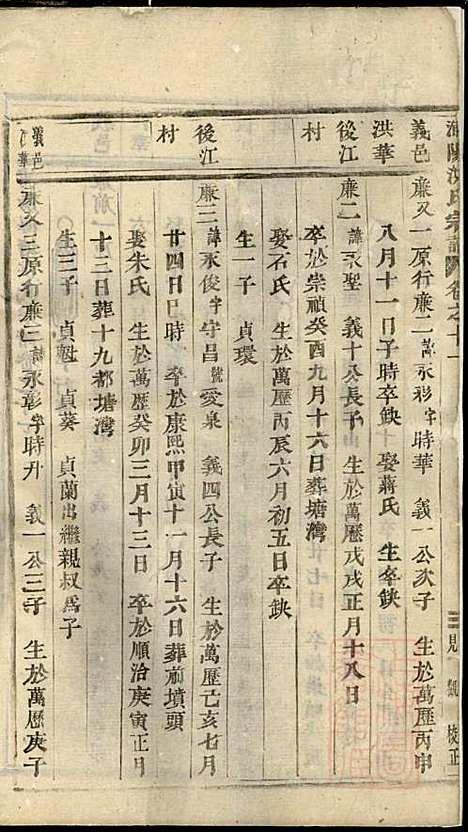 洪氏宗譜 卷之十一 三 見觀 校正
義邑 廉又一原行廉二諱永彩字時華 義一公次子 生於萬歷丙申
洪華 八月十一日子時卒缺 娶蔣氏 生卒缺
後江 廉二諱永聖 義十公長子 生於萬歷戊戌正月十八日
村 卒於崇禎癸酉九月十六日葬塘灣
娶石氏 生於萬歷丙辰六月初五日卒缺
生一子 貞環
後江 廉二諱永俊字守昌號愛泉 義四公長子 生於萬歷己亥七月
村 廿四日巳時 卒於康熙甲寅十一月十六日葬前墳頭
娶朱氏 生於萬歷癸卯三月十三日 卒於順治庚寅正月
十三日葬十九都塘灣
生三子 貞魁 貞葵 貞蘭出繼親叔爲子
義邑 廉又三原行廉三諱永彰字時升 義一公三子 生於萬歷庚子
洪華